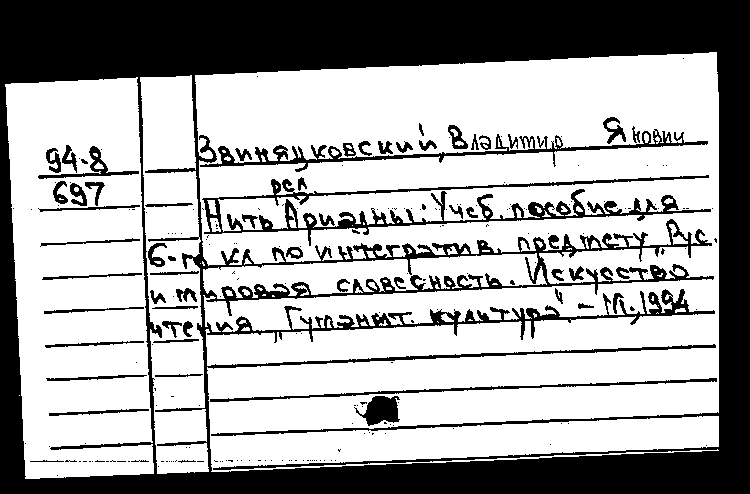 94-8
697
Звиняцковский, Владимир Янович
рел.
Нить Ариадны: Учеб. пособие для
6-го кл по интегратив. предмету „Рус.
и мировая словесность. Искусство
чтения „Гуманит. культура" – М., 1994